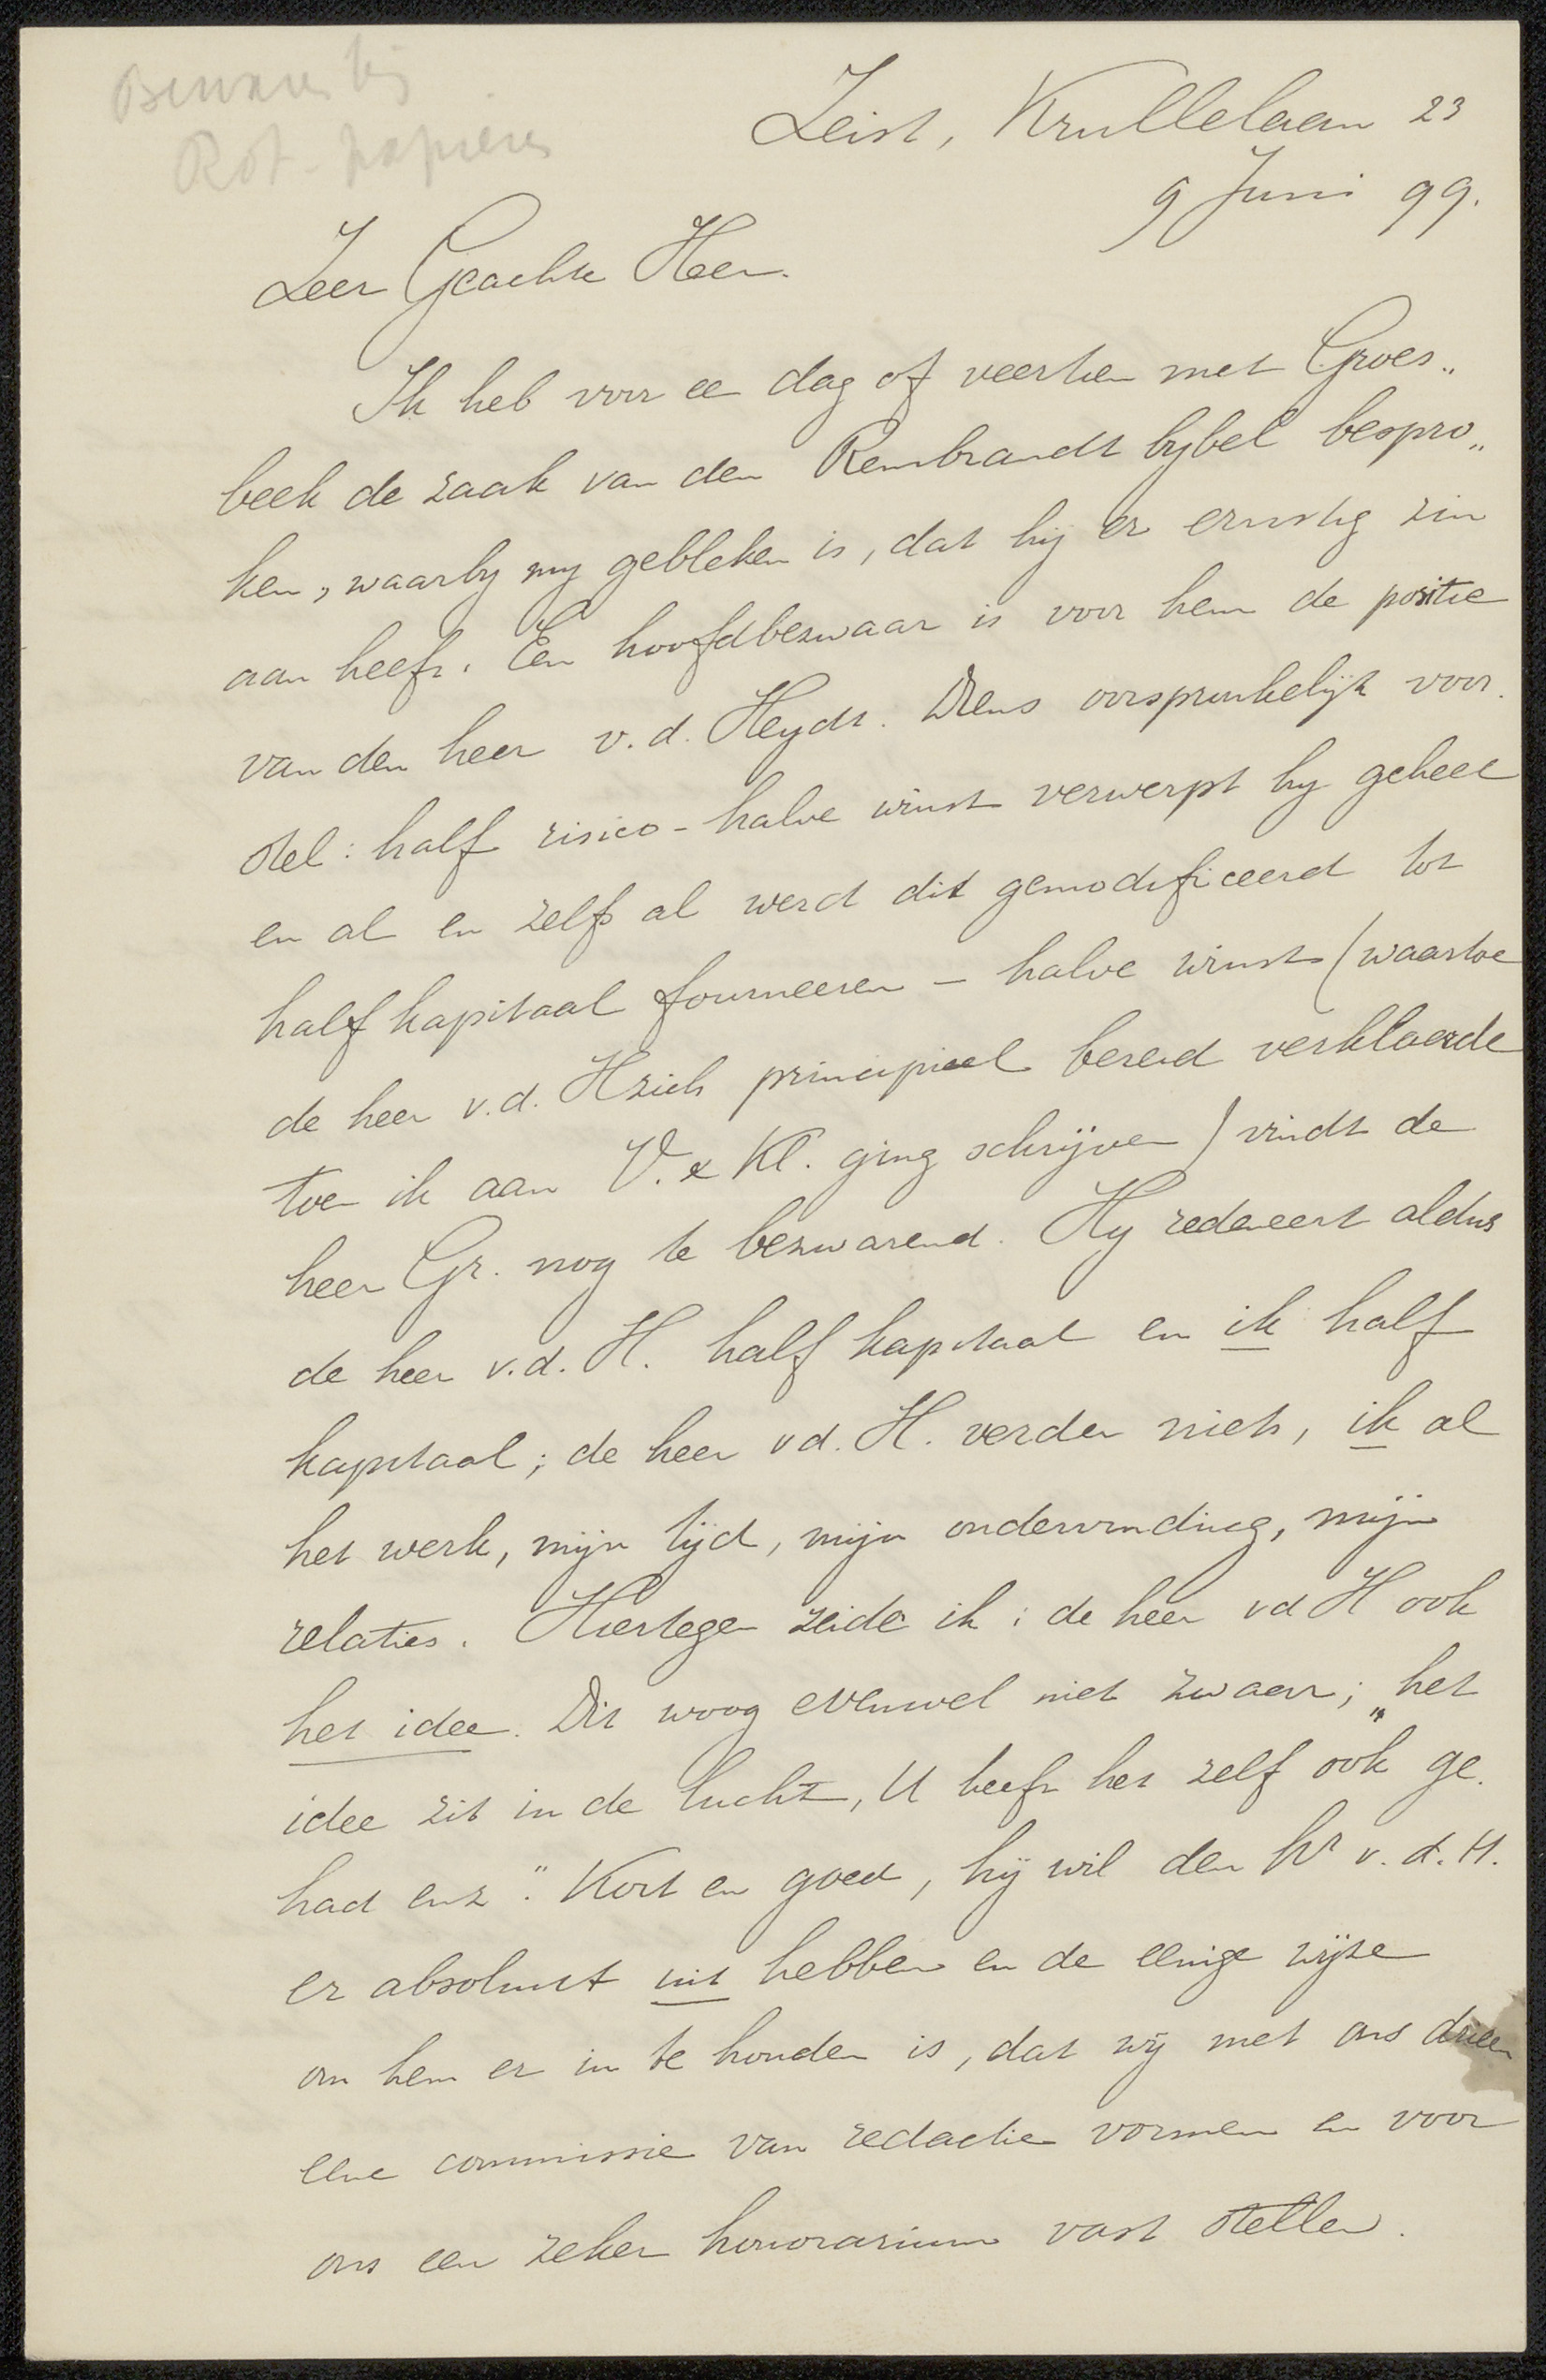 Bewaren bij
Rot- papieren
Zeist, Krullelaan 23
9 Juni 99.
Zeer Geachte Heer.
Ik heb voor ee dag of veertien met Groes„
beek de zaak van den Rembrandt bybel bespro„
ken, waarby my gebleken is, dat hij er ernstig zin
aan heeft. Een hoofdbezwaar is voor hem de positie
van den heer v.d. Heydt. Diens oorspronkelijk voor.
stel: half risico - halve winst verwerpt hy geheel
en al en zelfs al werd dit gemodificeerd tot
half kapitaal fourneeren - halve winst (waartoe
de heer v.d. H zich principieel bereid verklaarde
toen ik aan V. & Kl. ging schrijven) vindt de
heer Gr. nog te bezwarend. Hy redeneert aldus
de heer v.d. H. half kapitaal en ik half
kapitaal; de heer vd. H. verder niets, ik al
het werk, mijn tijd, mijn ondervinding, mijn
relaties. Hiertegen zeide ik: de heer vd H ook
het idee. Dit woog evenwel niet zwaar; „het
idee zit in de lucht, U heeft het zelf ook ge.
had enz." Kort en goed, hij wil den hr v. d. H.
er absoluut uit hebben en de eenige wijze
om hem er in te houden is, dat wij met ons drieen
eene commissie van redactie vormen en voor
ons een zeker honorarium vast stellen.